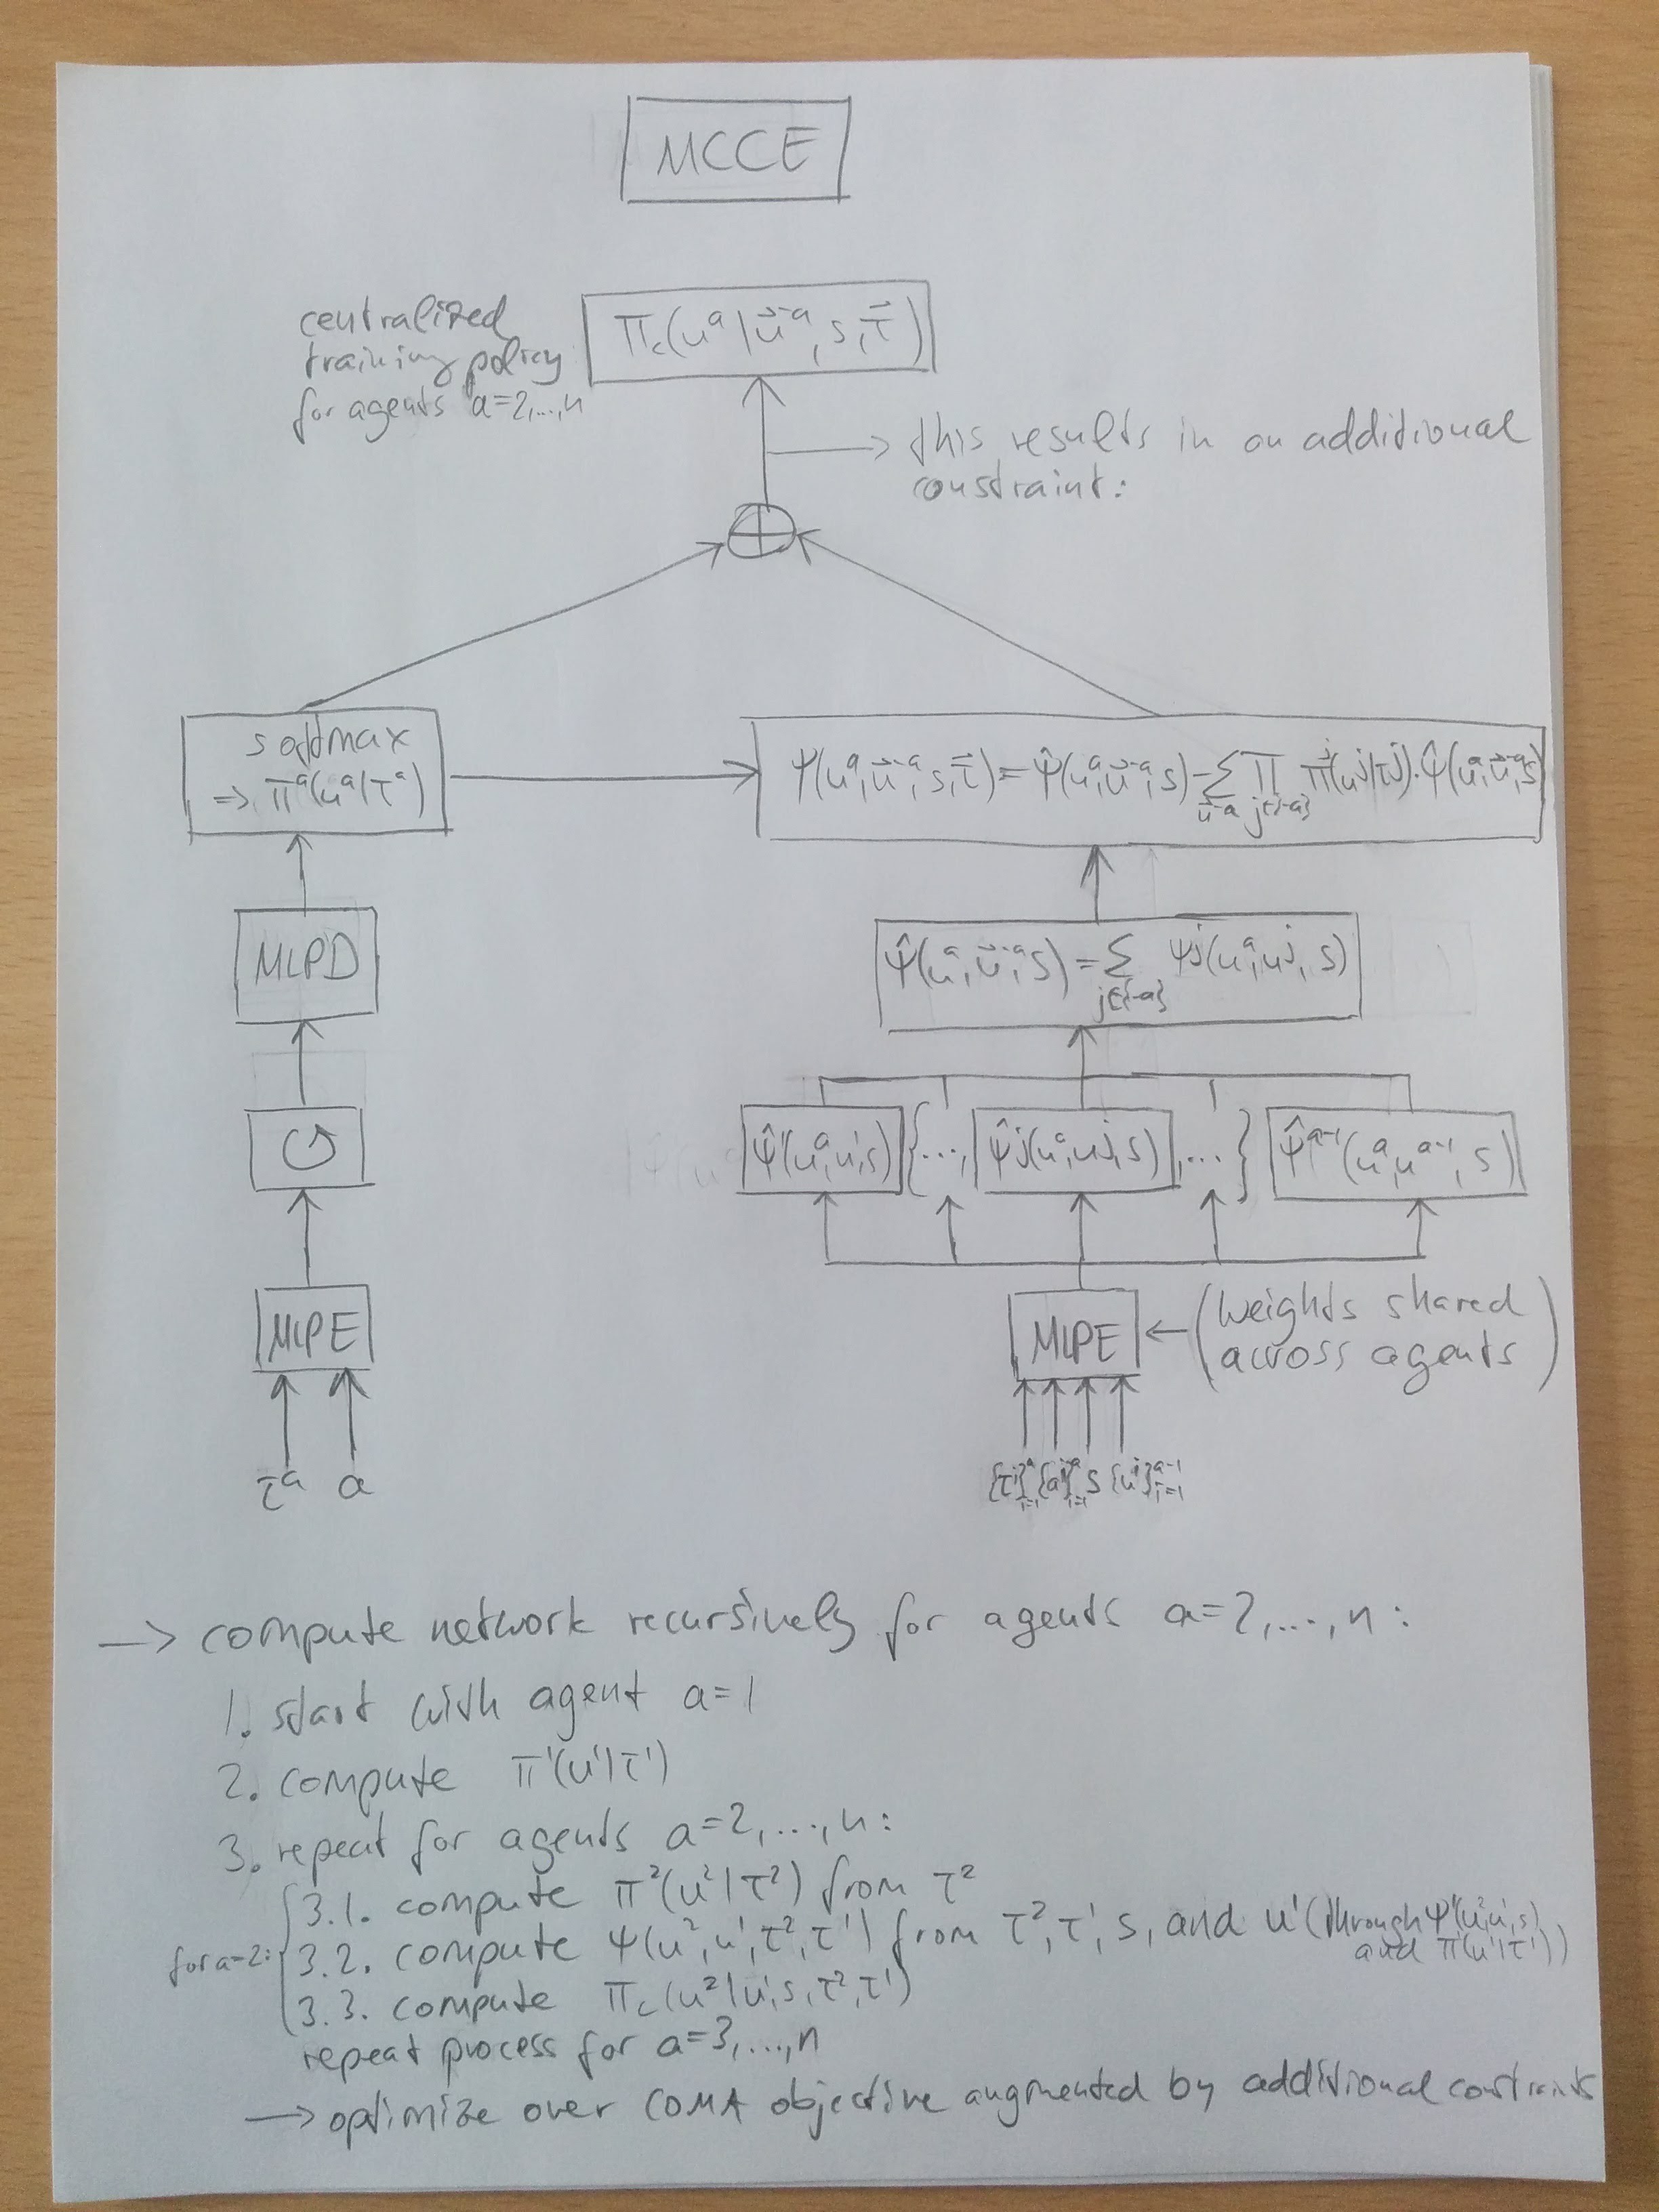 MCCE
centralized
training policy
for agents a=2,...,n
Π_c(u^a|u⃗^-a, s, τ⃗)
→ this results in an additional
constraint:
⊕
softmax
=> π^a(u^a|τ^a)
Ψ(u^a, u⃗^-a, s, τ⃗) = Ψ̂(u^a, u⃗^-a, s) - Σ_{u⃗^-a} Π_{j∈{-a}} π^j(u^j|τ^j)·Ψ̂(u^a, u⃗^-a, s)
MLPD
Ψ̂(u^a, u⃗^-a, s) = Σ_{j∈{-a}} Ψ^j(u^a, u^j, s)
↺
Ψ̂^1(u^a, u^1, s) {..., Ψ̂^j(u^a, u^j, s), ...} Ψ̂^a-1(u^a, u^a-1, s)
MLPE
MLPE ← (weights shared
across agents)
τ^a a
{τ^i}^a_{i=1} {a^i}^a_{i=1} s {u^i}^{a-1}_{i=1}
→ compute network recursively for agents a=2,...,n:
1. start with agent a=1
2. compute π^1(u^1|τ^1)
3. repeat for agents a=2,...,n:
for a=2:
3.1. compute π^2(u^2|τ^2) from τ^2
3.2. compute Ψ(u^2, u^1, τ^2, τ^1) from τ^2, τ^1, s, and u^1 (through Ψ^1(u^2, u^1, s)
and π^1(u^1|τ^1))
3.3. compute Π_c(u^2|u^1, s, τ^2, τ^1)
repeat process for a=3,...,n
→ optimize over COMA objective augmented by additional constraints